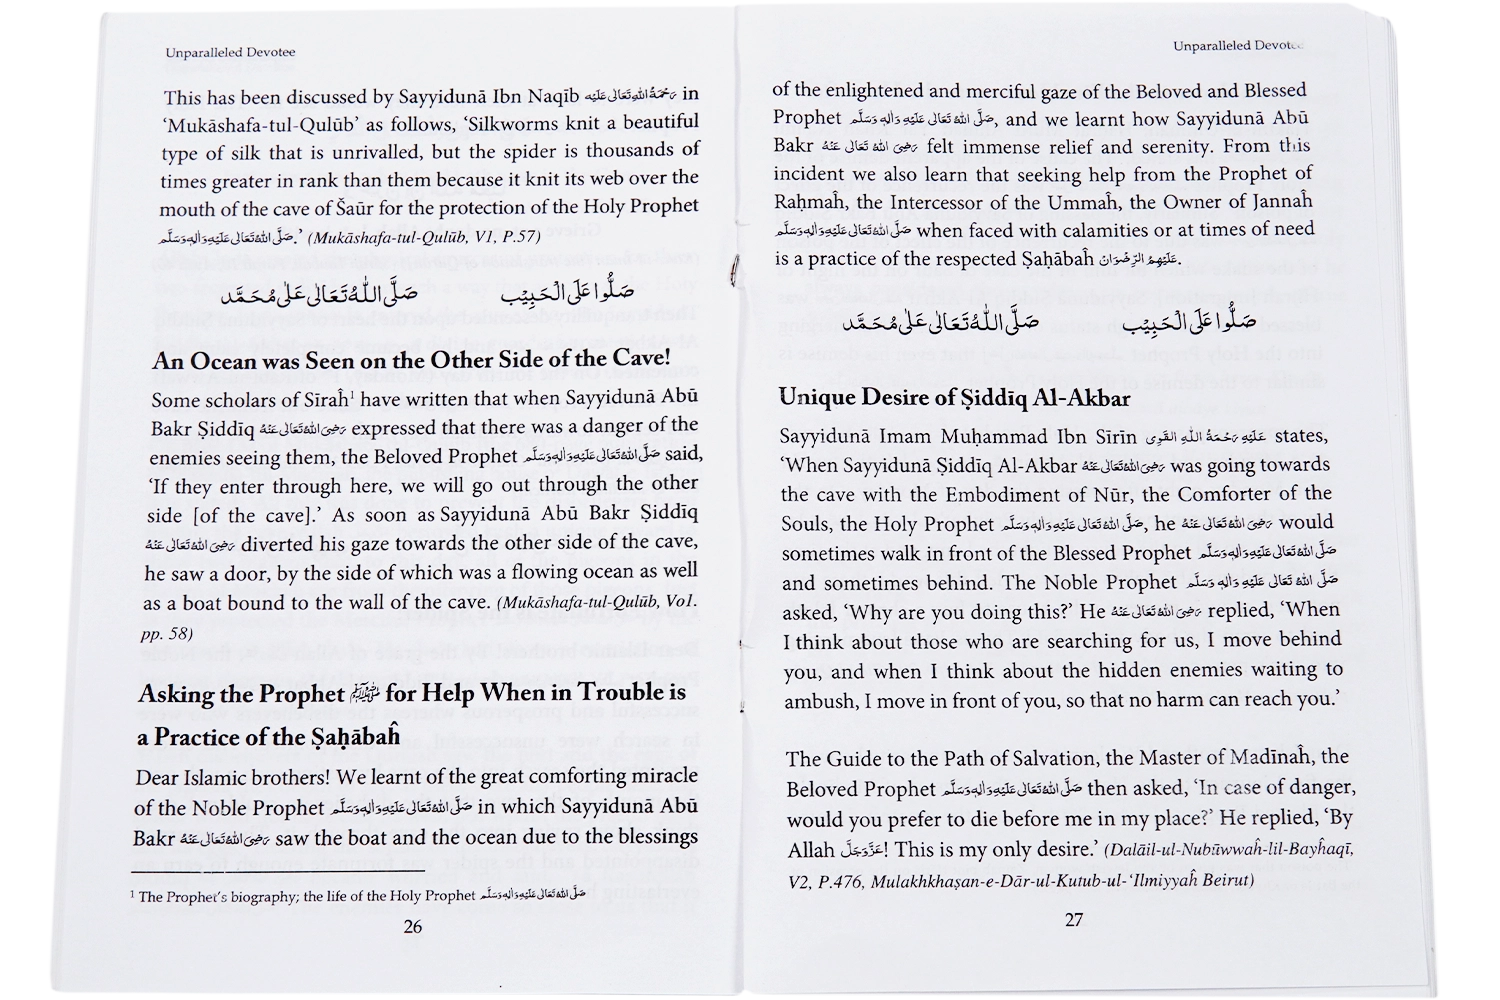 Unparalleled Devotee
This has been discussed by Sayyidunā Ibn Naqīb رَحْمَةُ اللهِ تَعَالٰی عَلَيْه in
‘Mukāshafa-tul-Qulūb’ as follows, ‘Silkworms knit a beautiful
type of silk that is unrivalled, but the spider is thousands of
times greater in rank than them because it knit its web over the
mouth of the cave of Šaūr for the protection of the Holy Prophet
صَلَّى اللهُ تَعَالٰى عَلَيْهِ وَاٰلِهٖ وَسَلَّم.’ (Mukāshafa-tul-Qulūb, V1, P.57)
صَلُّوا عَلَى الْحَبِيْب صَلَّى اللهُ تَعَالٰى عَلٰى مُحَمَّد
An Ocean was Seen on the Other Side of the Cave!
Some scholars of Sīraĥ¹ have written that when Sayyidunā Abū
Bakr Ṣiddīq رَضِىَ اللهُ تَعَالٰى عَنْهُ expressed that there was a danger of the
enemies seeing them, the Beloved Prophet صَلَّى اللهُ تَعَالٰى عَلَيْهِ وَاٰلِهٖ وَسَلَّم said,
‘If they enter through here, we will go out through the other
side [of the cave].’ As soon as Sayyidunā Abū Bakr Ṣiddīq
رَضِىَ اللهُ تَعَالٰى عَنْهُ diverted his gaze towards the other side of the cave,
he saw a door, by the side of which was a flowing ocean as well
as a boat bound to the wall of the cave. (Mukāshafa-tul-Qulūb, Vo1.
pp. 58)
Asking the Prophet ﷺ for Help When in Trouble is
a Practice of the Ṣaḥābaĥ
Dear Islamic brothers! We learnt of the great comforting miracle
of the Noble Prophet صَلَّى اللهُ تَعَالٰى عَلَيْهِ وَاٰلِهٖ وَسَلَّم in which Sayyidunā Abū
Bakr رَضِىَ اللهُ تَعَالٰى عَنْهُ saw the boat and the ocean due to the blessings
¹ The Prophet’s biography; the life of the Holy Prophet صَلَّى اللهُ تَعَالٰى عَلَيْهِ وَاٰلِهٖ وَسَلَّم
26
Unparalleled Devotee
of the enlightened and merciful gaze of the Beloved and Blessed
Prophet صَلَّى اللهُ تَعَالٰى عَلَيْهِ وَاٰلِهٖ وَسَلَّم, and we learnt how Sayyidunā Abū
Bakr رَضِىَ اللهُ تَعَالٰى عَنْهُ felt immense relief and serenity. From this
incident we also learn that seeking help from the Prophet of
Raḥmaĥ, the Intercessor of the Ummaĥ, the Owner of Jannaĥ
صَلَّى اللهُ تَعَالٰى عَلَيْهِ وَاٰلِهٖ وَسَلَّم when faced with calamities or at times of need
is a practice of the respected Ṣaḥābaĥ عَلَيْهِمُ الرِّضْوَان.
صَلُّوا عَلَى الْحَبِيْب صَلَّى اللهُ تَعَالٰى عَلٰى مُحَمَّد
Unique Desire of Ṣiddīq Al-Akbar
Sayyidunā Imam Muḥammad Ibn Sīrīn عَلَيْهِ رَحْمَةُ اللهِ الْقَوِى states,
‘When Sayyidunā Ṣiddīq Al-Akbar رَضِىَ اللهُ تَعَالٰى عَنْهُ was going towards
the cave with the Embodiment of Nūr, the Comforter of the
Souls, the Holy Prophet صَلَّى اللهُ تَعَالٰى عَلَيْهِ وَاٰلِهٖ وَسَلَّم, he رَضِىَ اللهُ تَعَالٰى عَنْهُ would
sometimes walk in front of the Blessed Prophet صَلَّى اللهُ تَعَالٰى عَلَيْهِ وَاٰلِهٖ وَسَلَّم
and sometimes behind. The Noble Prophet صَلَّى اللهُ تَعَالٰى عَلَيْهِ وَاٰلِهٖ وَسَلَّم
asked, ‘Why are you doing this?’ He رَضِىَ اللهُ تَعَالٰى عَنْهُ replied, ‘When
I think about those who are searching for us, I move behind
you, and when I think about the hidden enemies waiting to
ambush, I move in front of you, so that no harm can reach you.’
The Guide to the Path of Salvation, the Master of Madīnaĥ, the
Beloved Prophet صَلَّى اللهُ تَعَالٰى عَلَيْهِ وَاٰلِهٖ وَسَلَّم then asked, ‘In case of danger,
would you prefer to die before me in my place?’ He replied, ‘By
Allah عَزَّوَجَلَّ! This is my only desire.’ (Dalāil-ul-Nubūwwaĥ-lil-Bayĥaqī,
V2, P.476, Mulakhkhaṣan-e-Dār-ul-Kutub-ul-‘Ilmiyyaĥ Beirut)
27